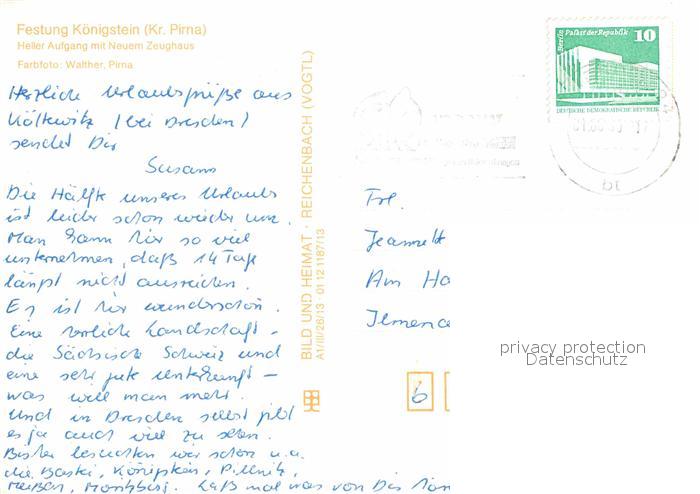 Festung Königstein (Kr. Pirna)
Heller Aufgang mit Neuem Zeughaus
Farbfoto: Walther, Pirna
Herzliche Urlaubsgrüße aus
(bei Dresden)
sendet Dir
Susann
Die Hälfte unseres Urlaubs
ist leider schon wieder um.
Man kann hier so viel
unternehmen, daß 14 Tage
längst nicht ausreichen.
Es ist hier wunderschön.
Eine herrliche Landschaft -
die Sächsische Schweiz und
eine sehr gute Unterkunft -
was will man mehr.
Und in Dresden selbst gibt
es ja auch viel zu sehen.
Bisher besuchten wir schon u.a.
die Bastei, Königstein, Pillnitz,
Meißen, Moritzburg. Laß mal was von Dir
BILD UND HEIMAT · REICHENBACH (VOGTL)
A1/III/26/13 · 01 12 1187/13
Berlin Palast der Republik
10
DEUTSCHE DEMOKRATISCHE REPUBLIK
Frl.
Am
6
privacy protection
Datenschutz